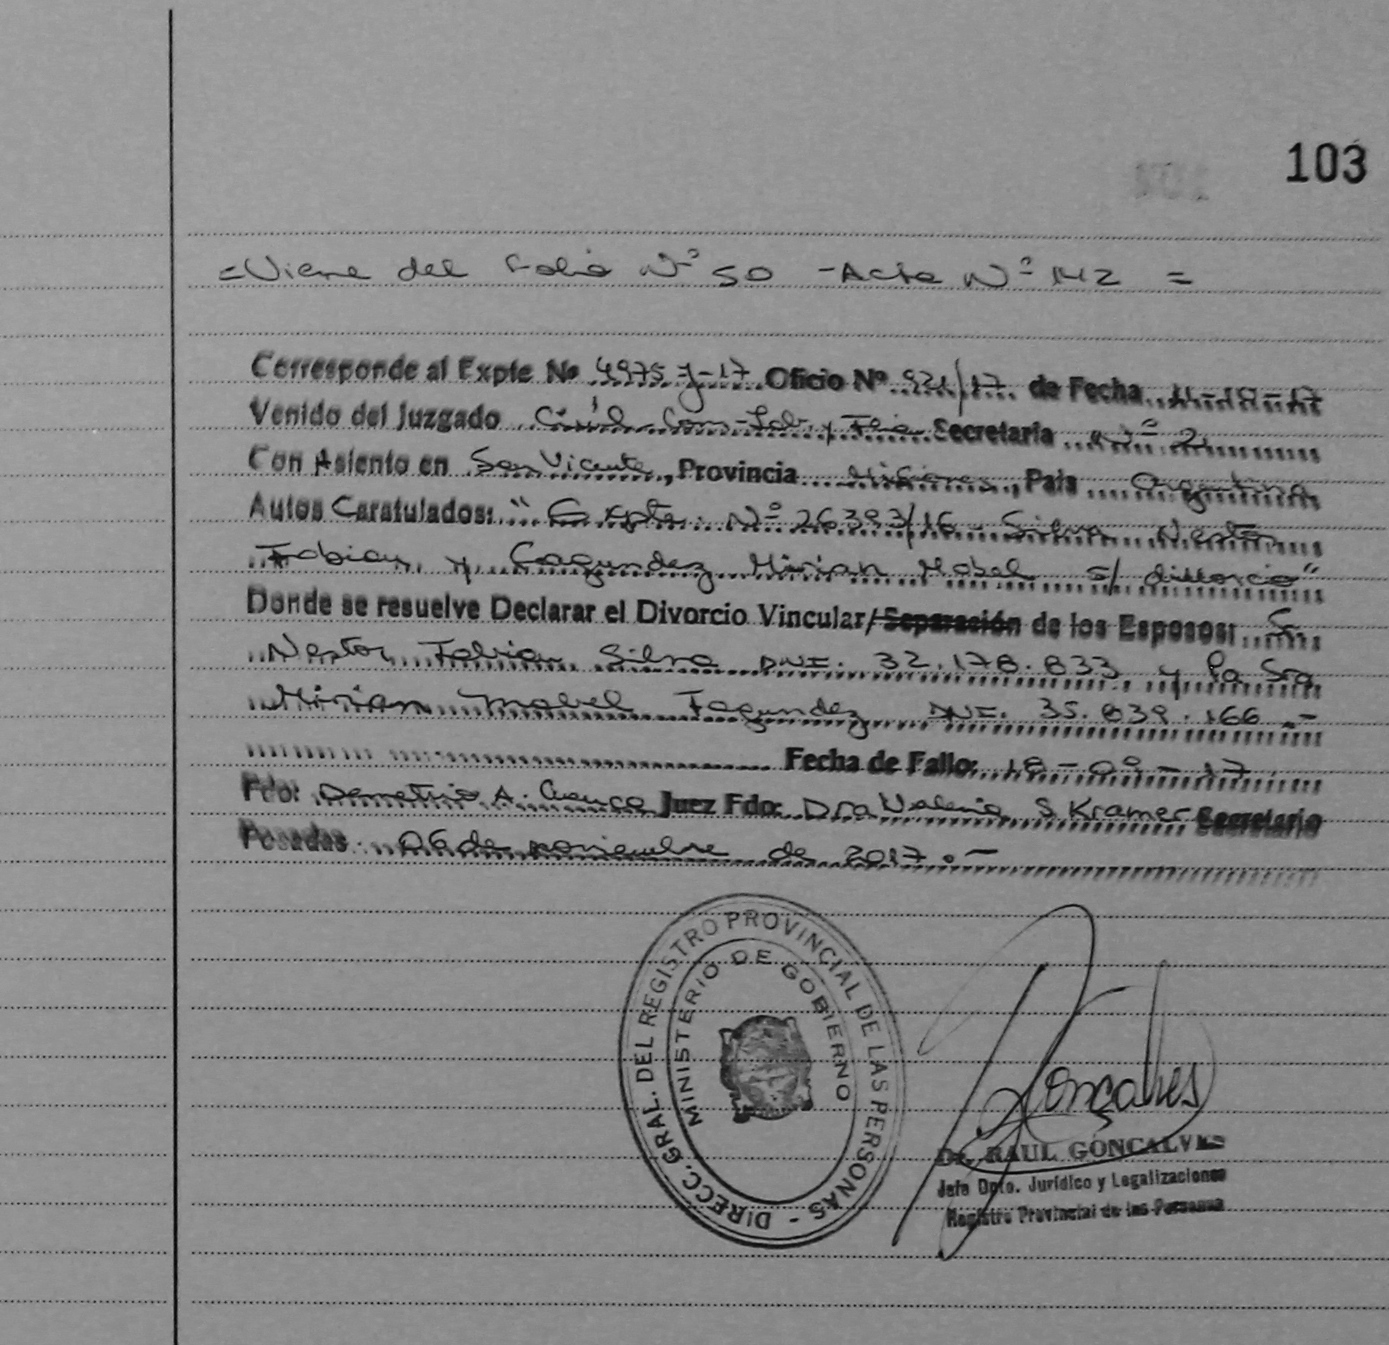 103
= Viene del Folio Nº 50 - Acta Nº 142 =
Corresponde al Expte Nº 4975 J-17 Oficio Nº 921/17 de Fecha 11-10-17
Venido del Juzgado Civil Com-Lab. y Flia Secretaria Nº 2
Con Asiento en San Vicente, Provincia Misiones, Pais Argentina
Autos Caratulados: " Expte. Nº 26393/16 - Silva Nestor
Fabian y Fagundez Mirian Mabel s/ divorcio"
Donde se resuelve Declarar el Divorcio Vincular/Separación de los Esposos: Sr.
Nestor Fabian Silva DNI. 32.178.833 y la Sra
Mirian Mabel Fagundez DNI. 35.839.166.-
Fecha de Fallo: 18-09-17
Fdo: Demetrio A. Cuenca Juez Fdo: Dra Valeria S Kramer Secretario
Posadas 06 de noviembre de 2017.-
DIRECC. GRAL. DEL REGISTRO PROVINCIAL DE LAS PERSONAS -
MINISTERIO DE GOBIERNO
Gonçalves
Dr. RAUL GONCALVES
Jefe Dpto. Jurídico y Legalizaciones
Registro Provincial de las Personas